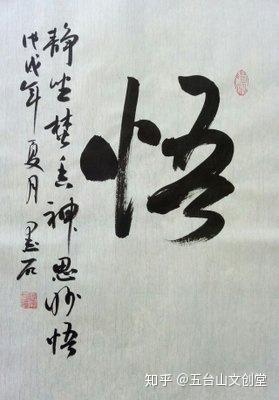 悟
静坐焚香神思妙悟
戊戌年夏月
墨石
知乎 @五台山文创堂